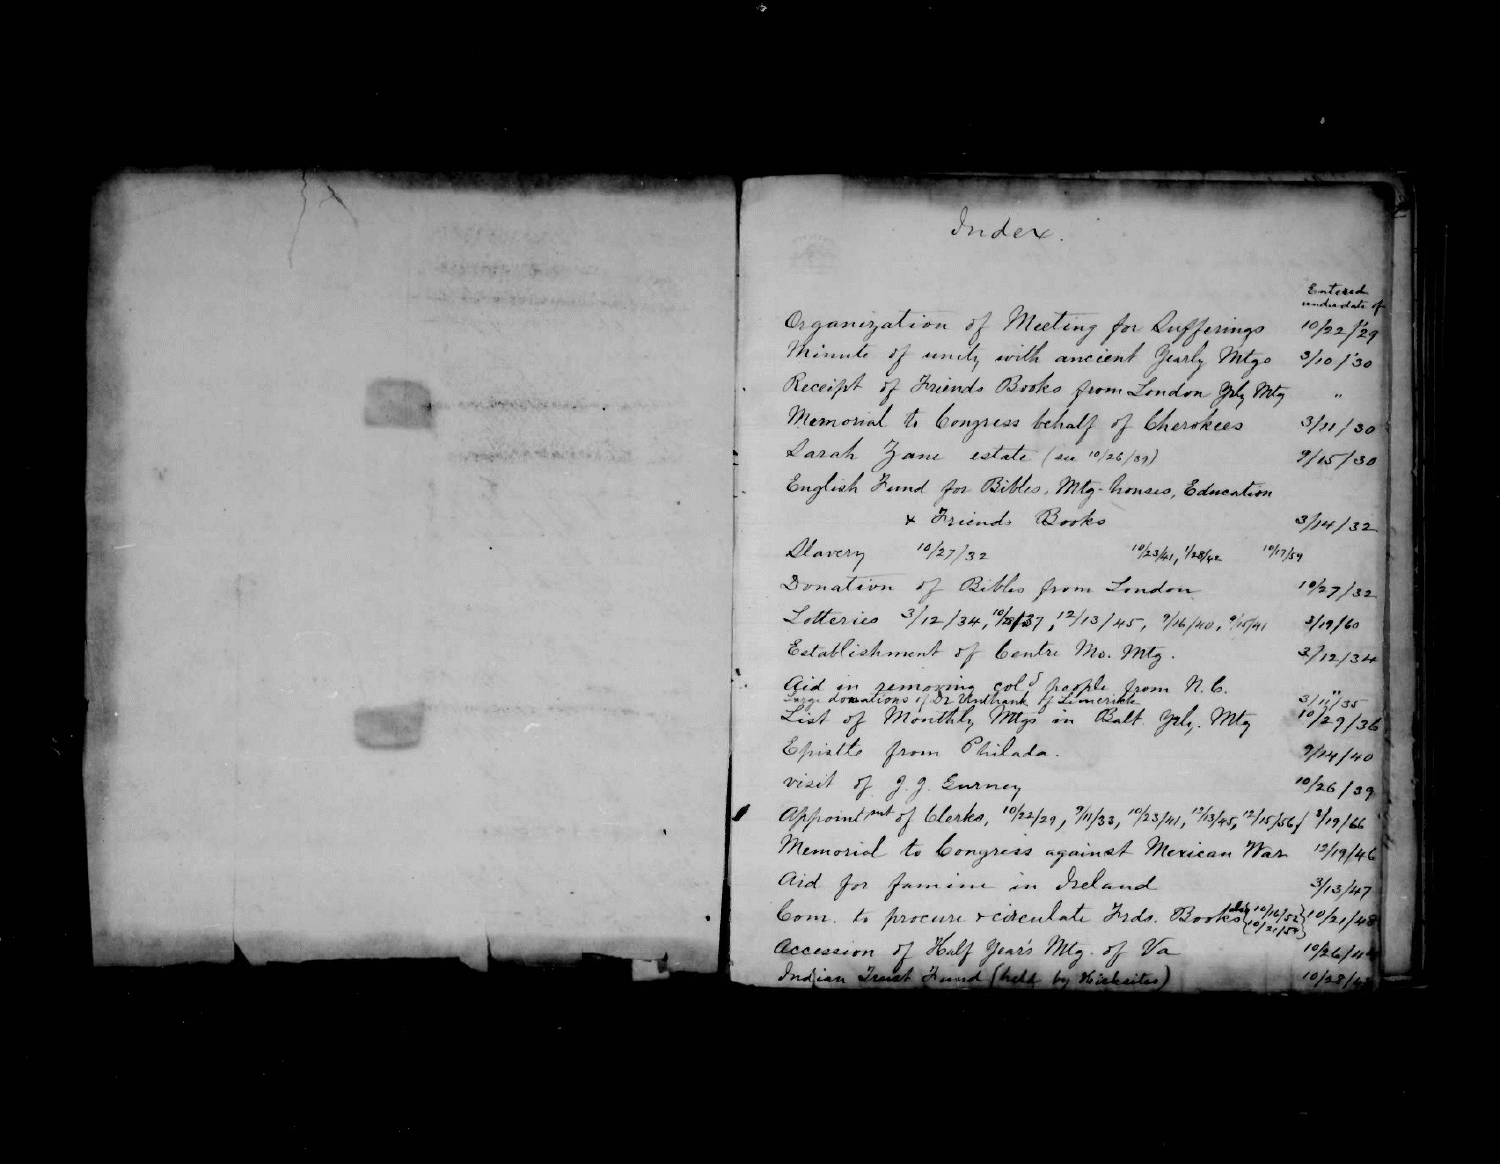 Index.
Entered
under date of
Organization of Meeting for Sufferings 10/22/'29
Minute of unity with ancient Yearly Mtgs 3/10/'30
Receipt of Friends Books from London Yrly Mtg "
Memorial to Congress behalf of Cherokees 3/11/30
Sarah Zane estate (see 10/26/39) 9/15/30
English Fund for Bibles, Mtg-houses, Education
& Friends Books 3/14/32
Slavery 10/27/32 10/23/41, 1/28/42 10/17/59
Donation of Bibles from London 10/27/32
Lotteries 3/12/34, 12/13/45, 9/16/40, 9/15/41 3/19/60
Establishment of Centre Mo. Mtg. 3/12/34
Aid in removing cold people from N.C. "
Large donations of Dr Unthank of Limerick 3/11/35
List of Monthly Mtgs in Balt. Yrly. Mtg 10/29/36
Epistle from Philada. 9/14/40
visit of J. J. Gurney 10/26/39
Appointmnt of Clerks, 10/22/29, 9/11/33, 10/23/41, 12/13/45, 12/15/56, 3/19/66
Memorial to Congress against Mexican War 12/19/46
Aid for famine in Ireland 3/13/47
Com. to procure & circulate Frds. Books {10/16/52 10/21/54} 10/21/48
Accession of Half Year's Mtg. of Va 10/26/44
Indian Trust Fund (held by Hicksites) 10/28/